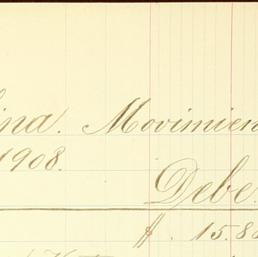 ina. Movimien
1908.
Debe.
$. 15.88